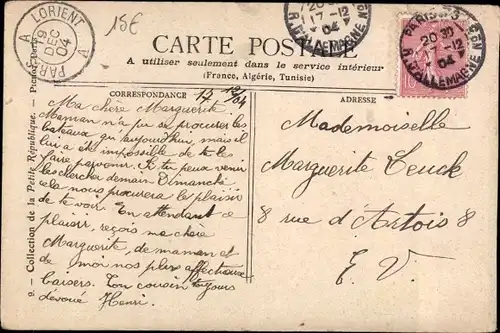 15E
LORIENT A PARIS
19 DEC 04
20
17-12
04
PARIS
20 30
-12
04
R. D'ALLEMAGNE
10
CARTE POSTALE
A utiliser seulement dans le service intérieur
(France, Algérie, Tunisie)
CORRESPONDANCE
17 12/04
ADRESSE
Ma chère Marguerite
Maman n'a pu se procurer les
bateaux qu'aujourd'hui, mais il
lui a été impossible de te les
faire parvenir. Si tu peux venir
les chercher demain Dimanche
cela nous procurera le plaisir
de te voir. En attendant ce
plaisir, reçois ma chère
Marguerite, de maman et
de moi nos plus affectueux
baisers. Ton cousin toujours
dévoué Henri.
Mademoiselle
Marguerite
8 rue d'Artois 8
E. V.
9. — Collection de la Petite République.